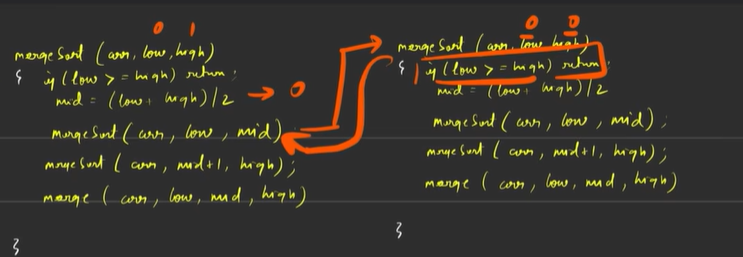 0 1
mergeSort (arr, low, high)
{ if (low >= high) return;
mid = (low + high)/2 → 0
mergeSort (arr, low, mid)
mergeSort (arr, mid+1, high);
merge (arr, low, mid, high)
}
0 0
mergeSort (arr, low, high)
{ if (low >= high) return;
mid = (low + high)/2
mergeSort (arr, low, mid);
mergeSort (arr, mid+1, high);
merge (arr, low, mid, high)
}